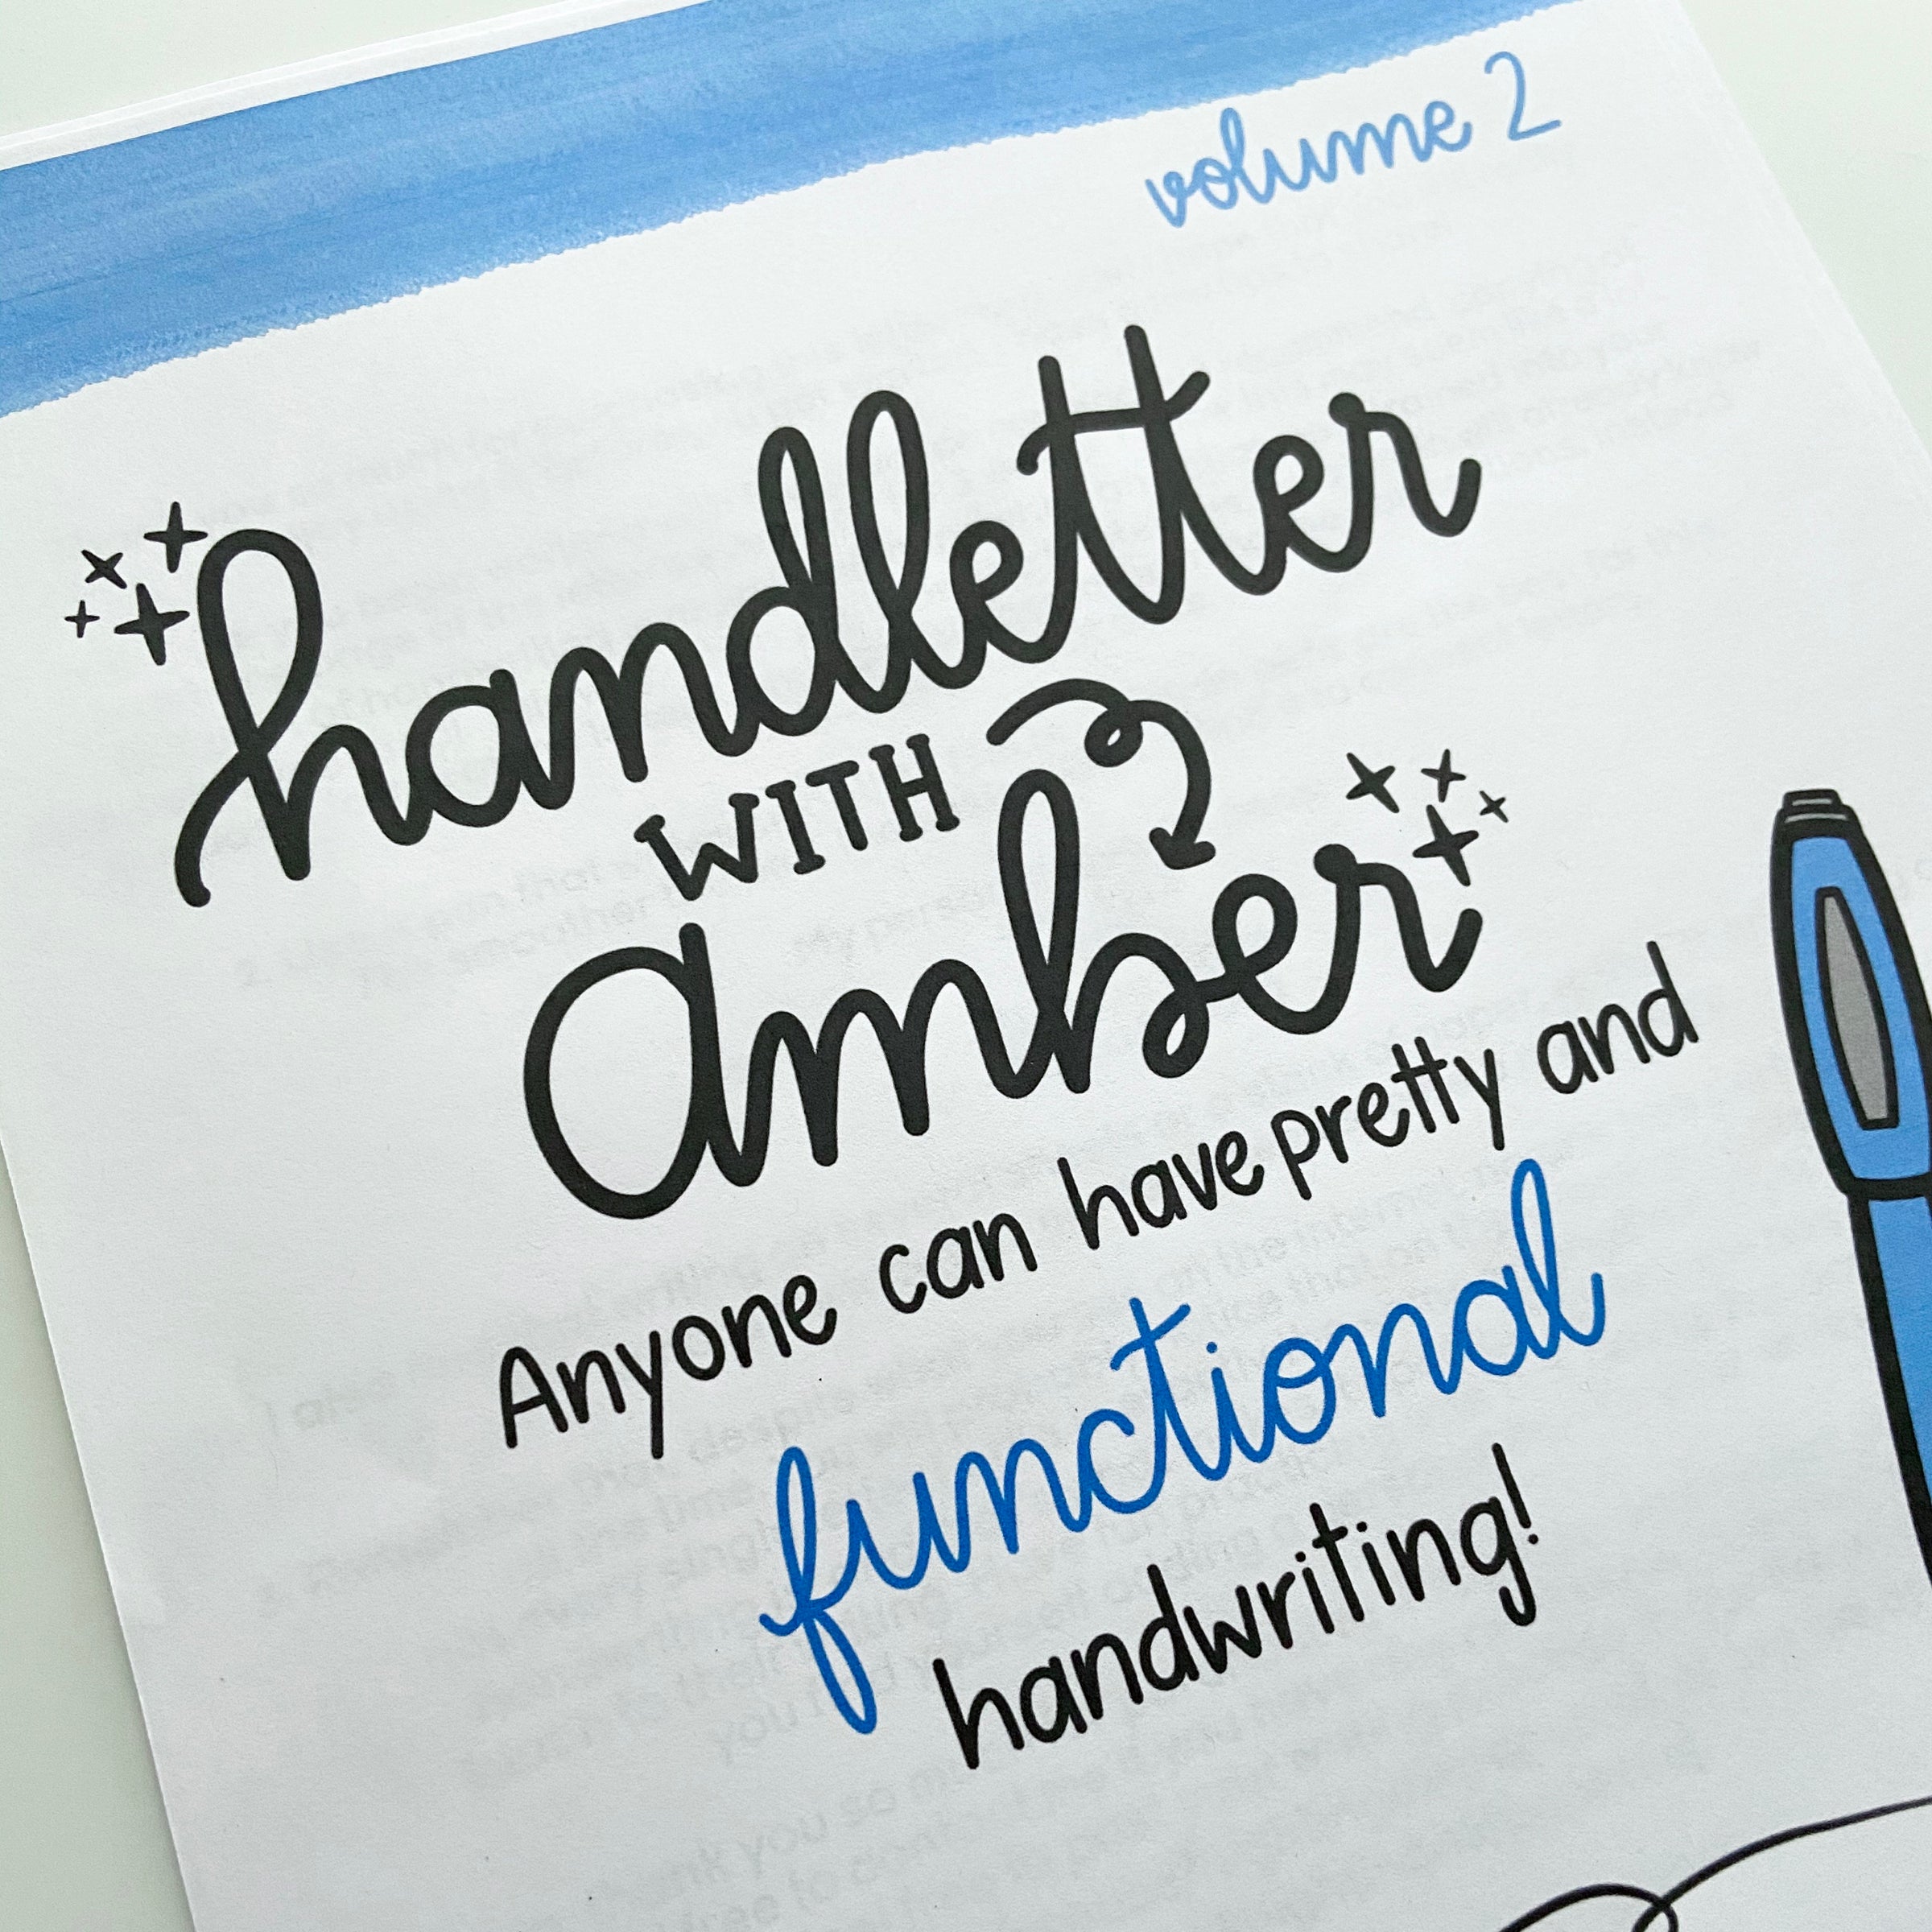 volume 2
handletter
WITH
amber
Anyone can have pretty and
functional
handwriting!